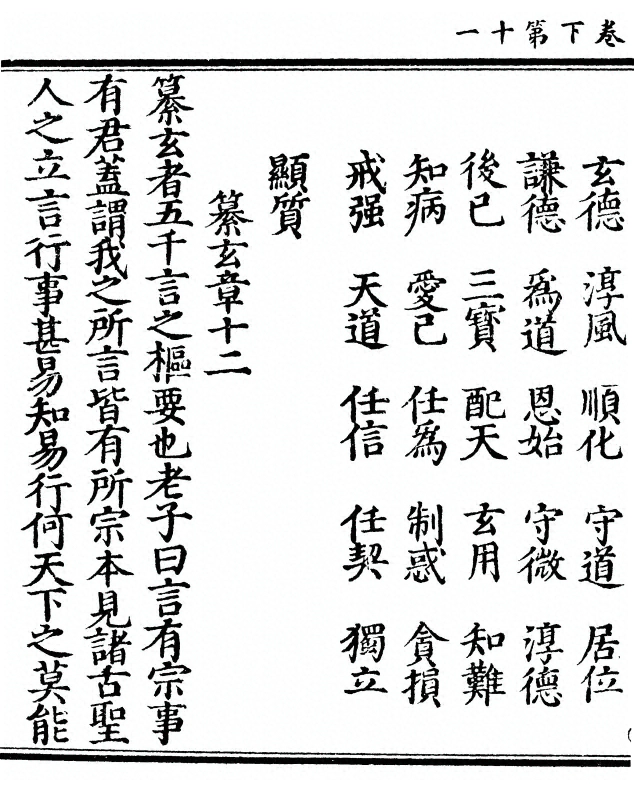 卷下第十一
玄德　淳風　順化　守道　居位
謙德　爲道　恩始　守微　淳德
後己　三寶　配天　玄用　知難
知病　愛己　任爲　制惑　貪損
戒强　天道　任信　任契　獨立
顯質
纂玄章十二
纂玄者五千言之樞要也老子曰言有宗事
有君蓋謂我之所言皆有所宗本見諸古聖
人之立言行事甚易知易行何天下之莫能